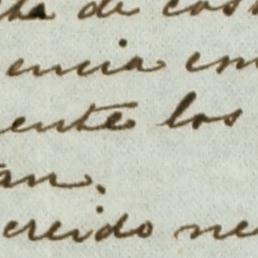 de cos
encia en
ente los
an.
creido ne